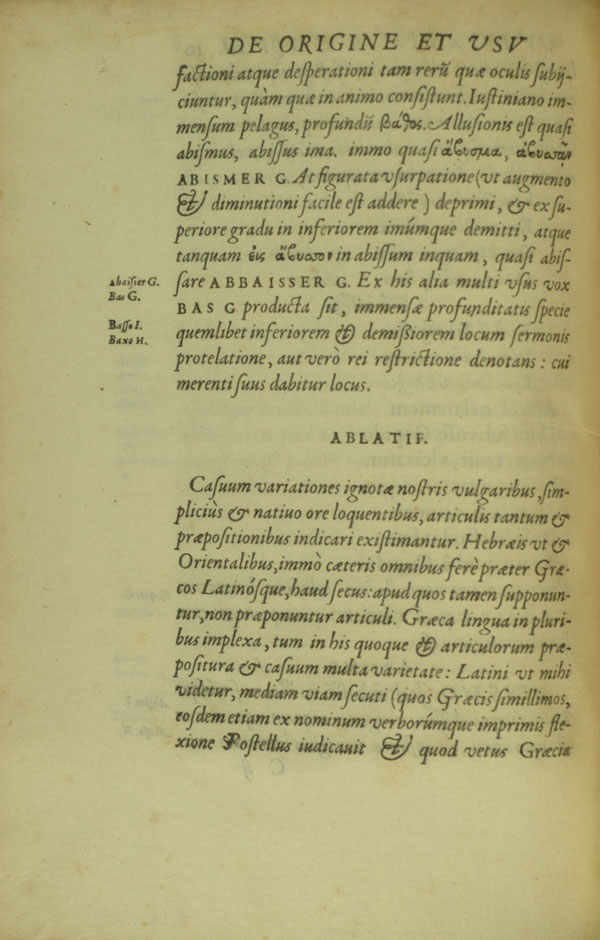 DE ORIGINE ET VSV
factioni atque desperationi tam rerũ quæ oculis subij-
ciuntur, quàm quæ in animo consistunt. Iustiniano im-
mensum pelagus, profundũ βαθος. Allusionis est quasi
abismus, abissus ima. immo quasi ἄβυσμα,
ABISMER G. At figurata vsurpatione (vt augmento
& diminutioni facile est addere) deprimi, & ex su-
periore gradu in inferiorem imúmque demitti, atque
tanquam εις ἄβυσσον in abissum inquam, quasi abis-
sare ABBAISSER G. Ex his alia multi vsus vox
BAS G producta sit, immensæ profunditatis specie
quemlibet inferiorem & demißiorem locum sermonis
protelatione, aut verò rei restrictione denotans: cui
merenti suus dabitur locus.
Abaisier G.
Bas G.
Basso I.
Baxo H.
ABLATIF.
Casuum variationes ignotæ nostris vulgaribus, sim-
pliciùs & natiuo ore loquentibus, articulis tantum &
præpositionibus indicari existimantur. Hebræis vt &
Orientalibus, immò cæteris omnibus ferè præter Græ-
cos Latinósque, haud secus: apud quos tamen supponun-
tur, non præponuntur articuli. Græca lingua in pluri-
bus implexa, tum in his quoque & articulorum præ-
positura & casuum multa varietate: Latini vt mihi
videtur, mediam viam secuti (quos Græcis simillimos,
eosdem etiam ex nominum verborúmque imprimis fle-
xione Postellus iudicauit & quod vetus Græcia